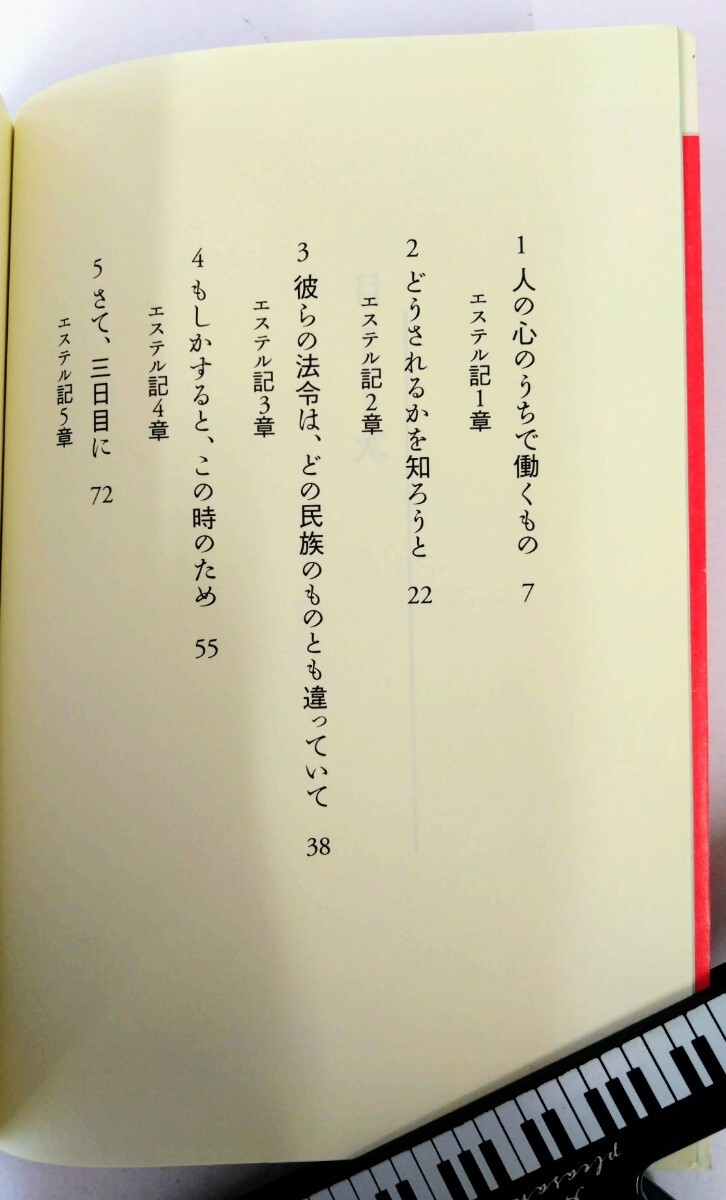 1 人の心のうちで働くもの 7
エステル記1章
2 どうされるかを知ろうと 22
エステル記2章
3 彼らの法令は、どの民族のものとも違っていて 38
エステル記3章
4 もしかすると、この時のため 55
エステル記4章
5 さて、三日目に 72
エステル記5章